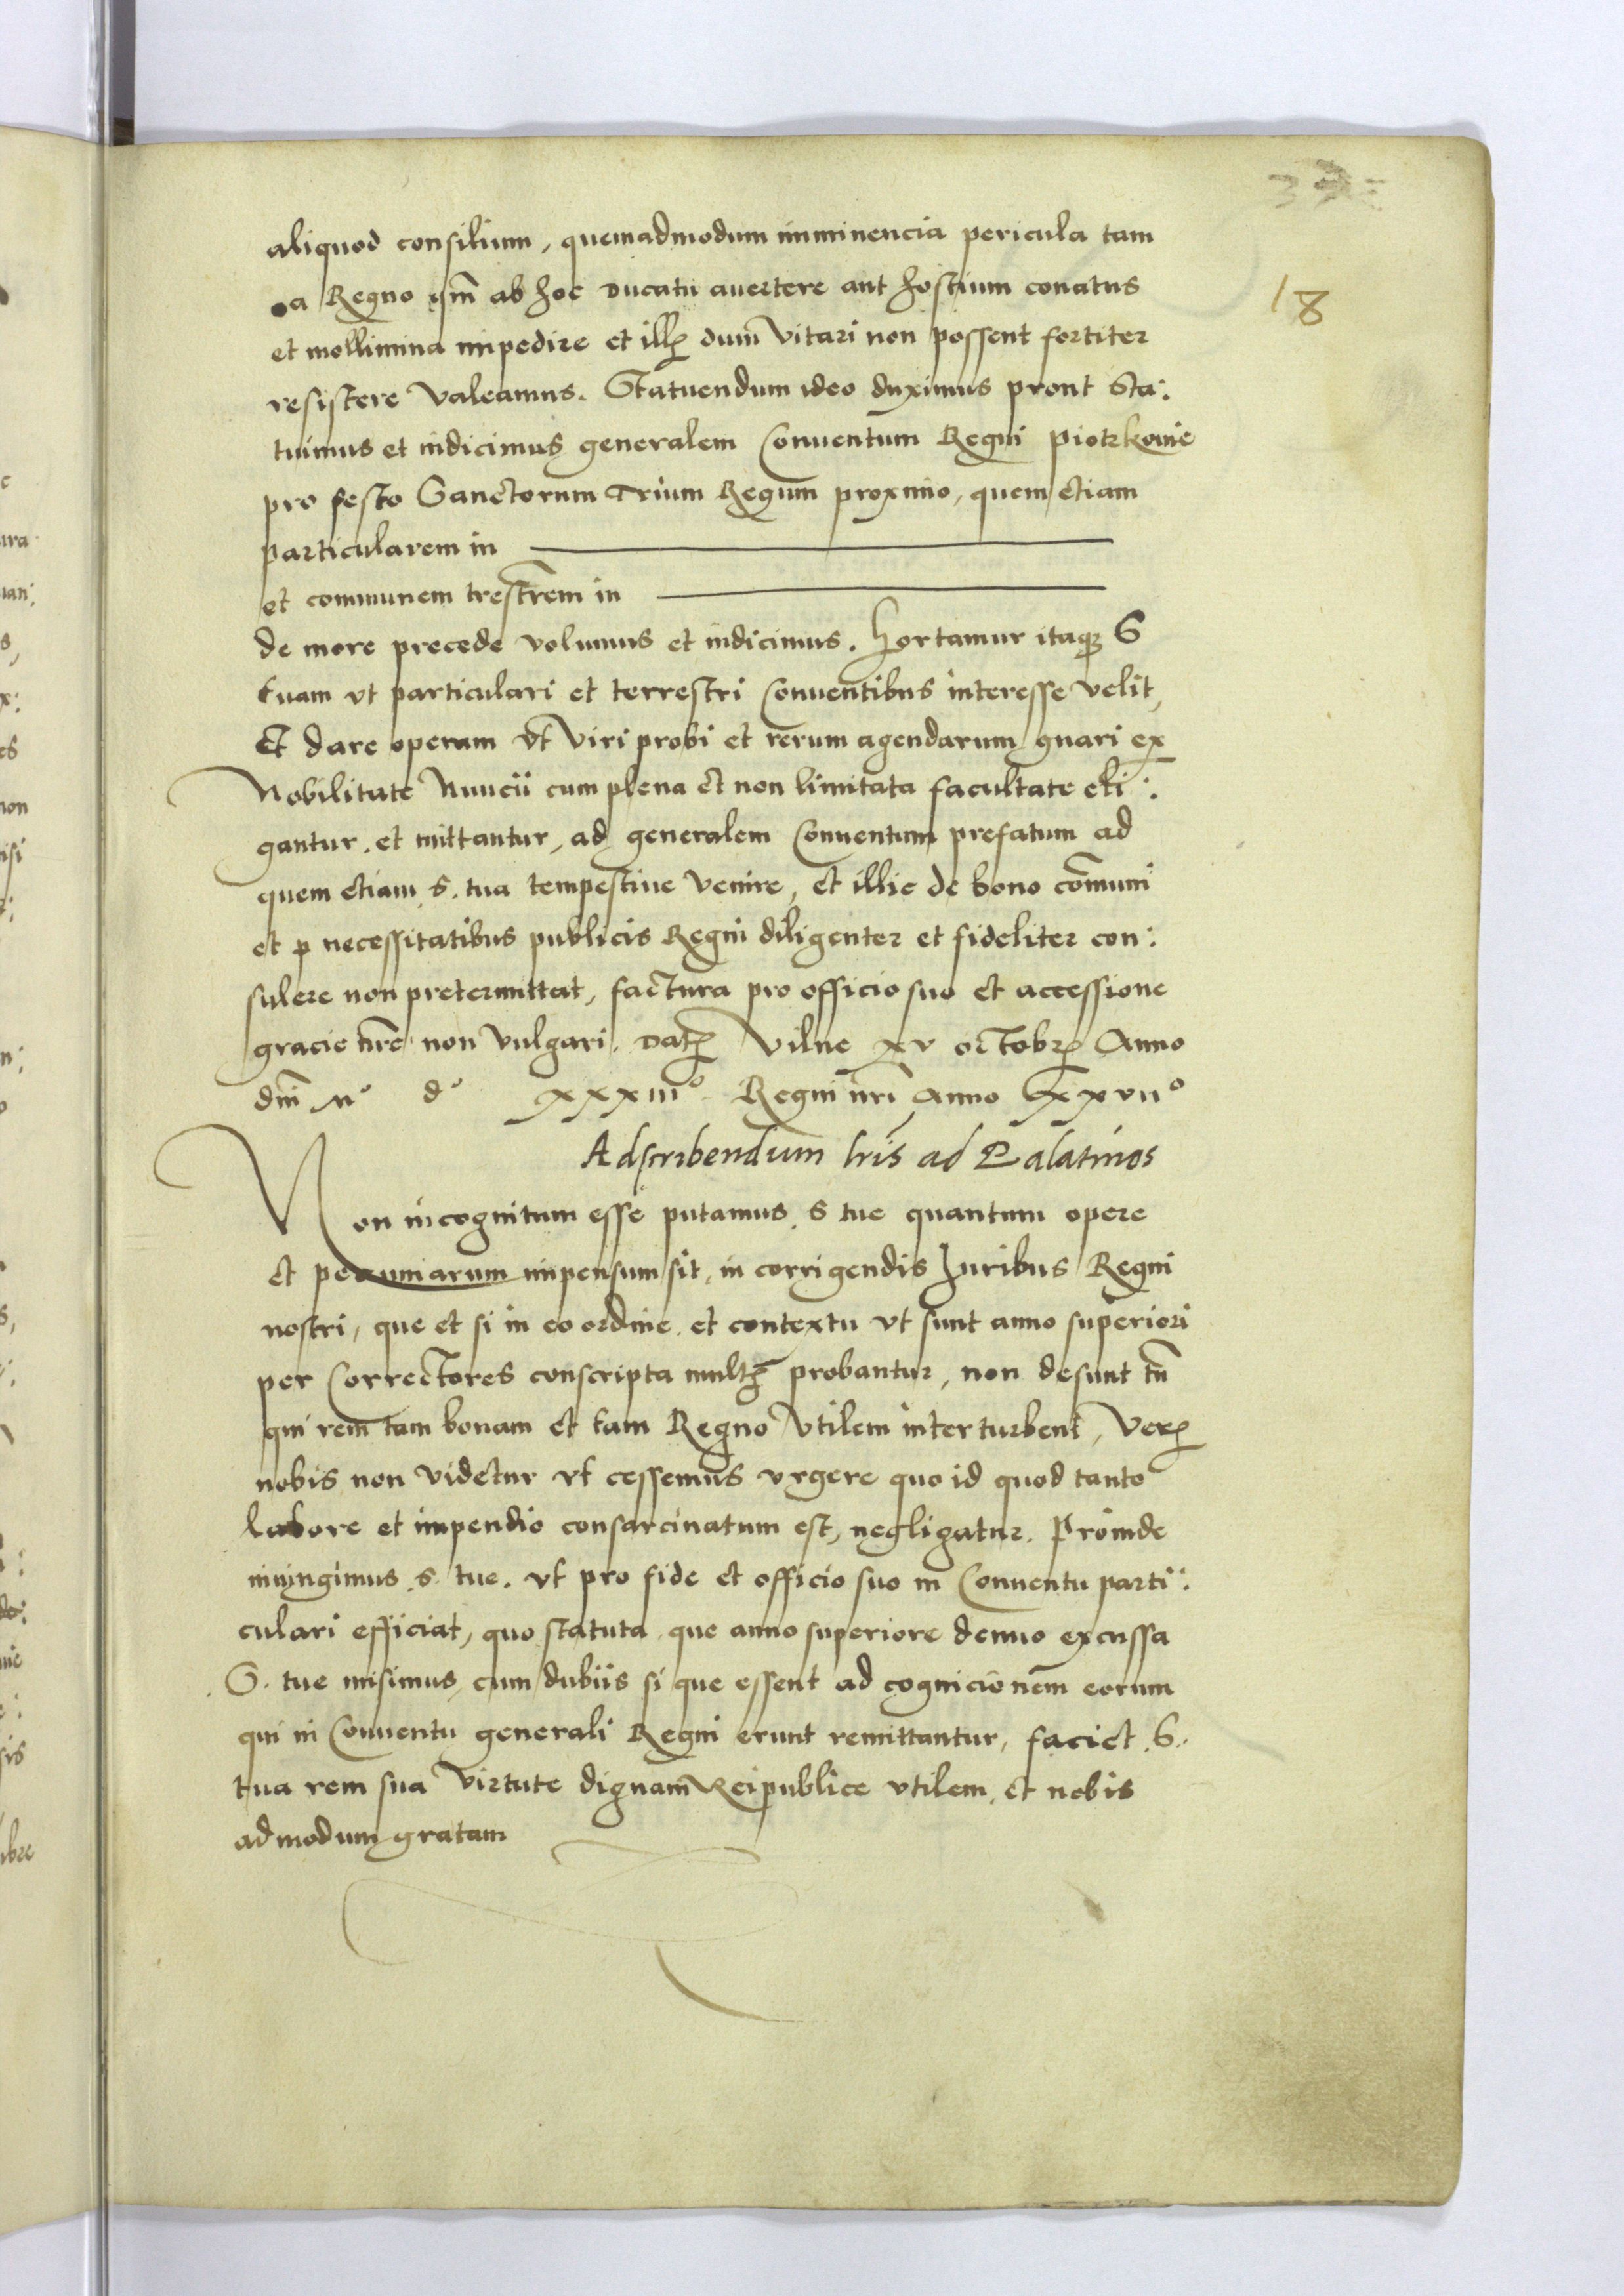 18
aliquod consilium, quemadmodum imminencia pericula tam
a Regno qm̄ ab hoc Ducatu auertere aut hostium conatus
et mollimina impedire et illꝭ dum vitari non possent fortiter
resistere valeamus. Statuendum ideo duximus prout Sta:
tuimus et indicimus generalem Conuentum Regni Piotrkouie
pro festo Sanctorum Trium Regum proximo, quem etiam
particularem in
et communem trestrem̄ in
de more precede volumus et indicimus. Hortamur itaqꝫ S
tuam vt particulari et terrestri Conuentibus interesse velit,
Et dare operam vt viri probi et rerum agendarum gnari ex
Nobilitate Nuncii cum plena et non limitata facultate eli:
gantur. et mittantur, ad generalem Conuentum prefatum ad
quem etiam S. tua tempestiue venire, et illic de bono com̄uni
et p necessitatibus publicis Regni diligenter et fideliter con:
sulere non pretermittat, factura pro officio suo et accessione
gracie nr̄e non vulgari. Datꝭ Vilne xv octobrꝭ Anno
dm̄ Mº dº xxxiiiº Regni nr̄i Anno xxviiº
Adscribendum lr̄is ad Palatinos
Non incognitum esse putamus S tue quantum opere
et pecuniarum impensum sit, in corrigendis Iuribus Regni
nostri, que et si in eo ordine et contextu vt sunt anno superiori
per Correctores conscripta multꝭ probantur, non desunt tn̄
qui rem tam bonam et tam Regno vtilem interturbent, Verꝭ
nobis non videtur vt cessemus vrgere quo id quod tanto
labore et impendio consarcinatum est, negligatur. Proinde
iniungimus S. tue. vt pro fide et officio suo in Conuentu parti:
culari efficiat, quo statuta que anno superiore denuo excussa
S. tue misimus, cum dubiis si que essent ad cognicionem eorum
qui in Conuentu generali Regni erunt remittantur, faciet S.
tua rem sua virtute dignam Reipublice vtilem, et nobis
admodum gratam